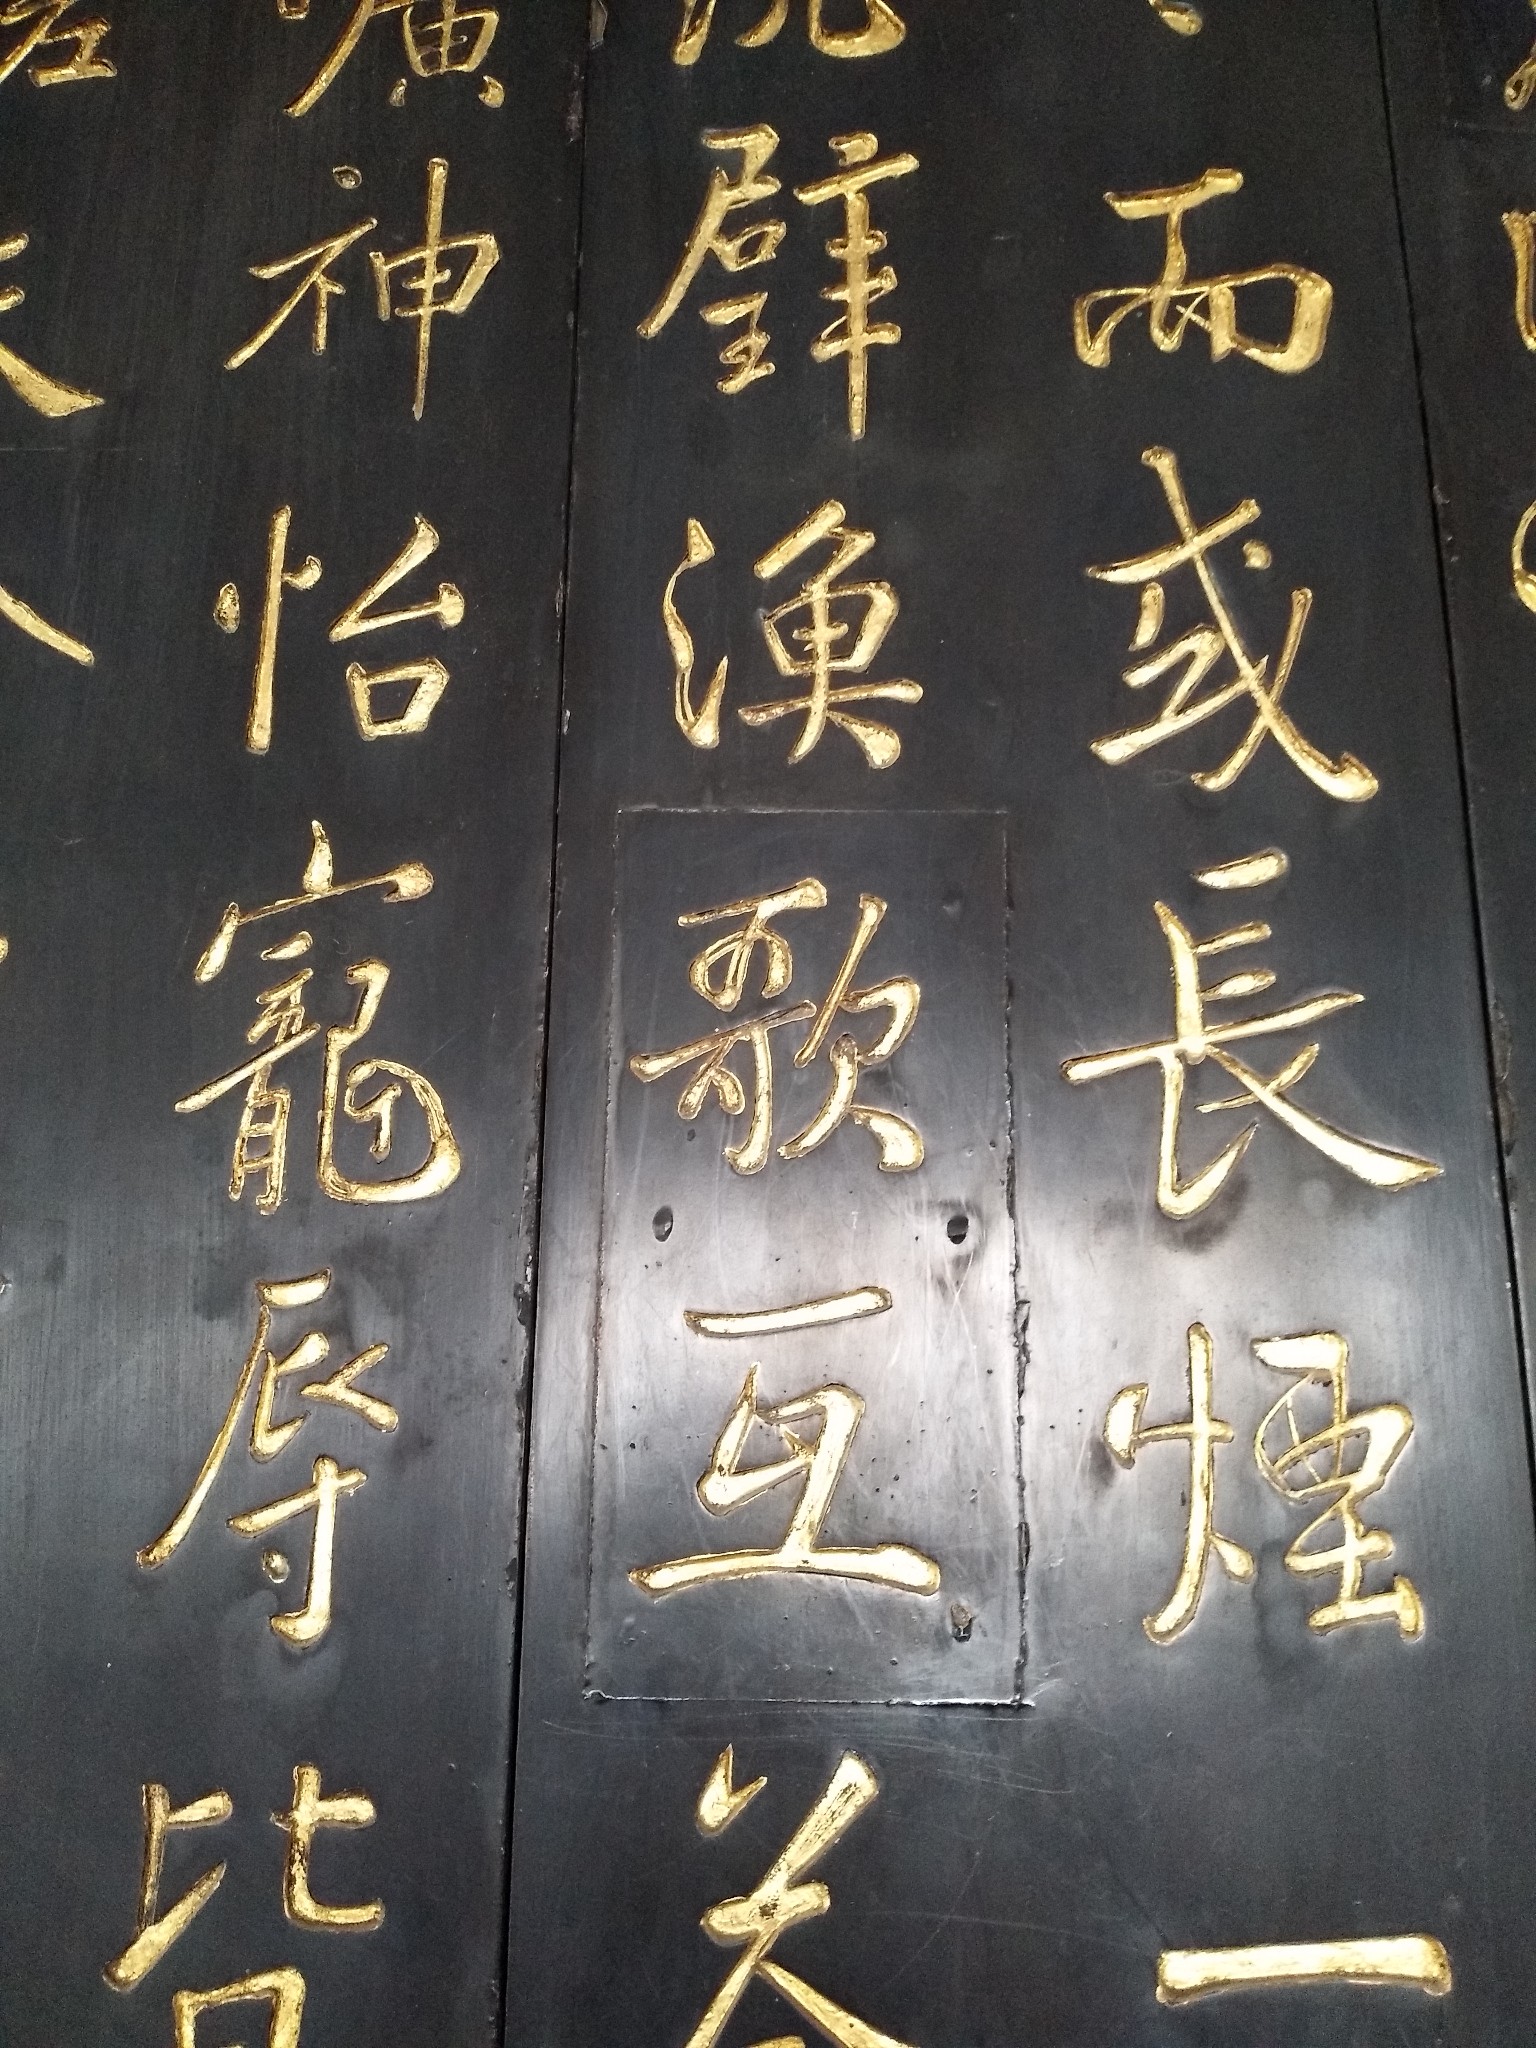 而或長煙一
沉璧漁歌互答
曠神怡寵辱皆